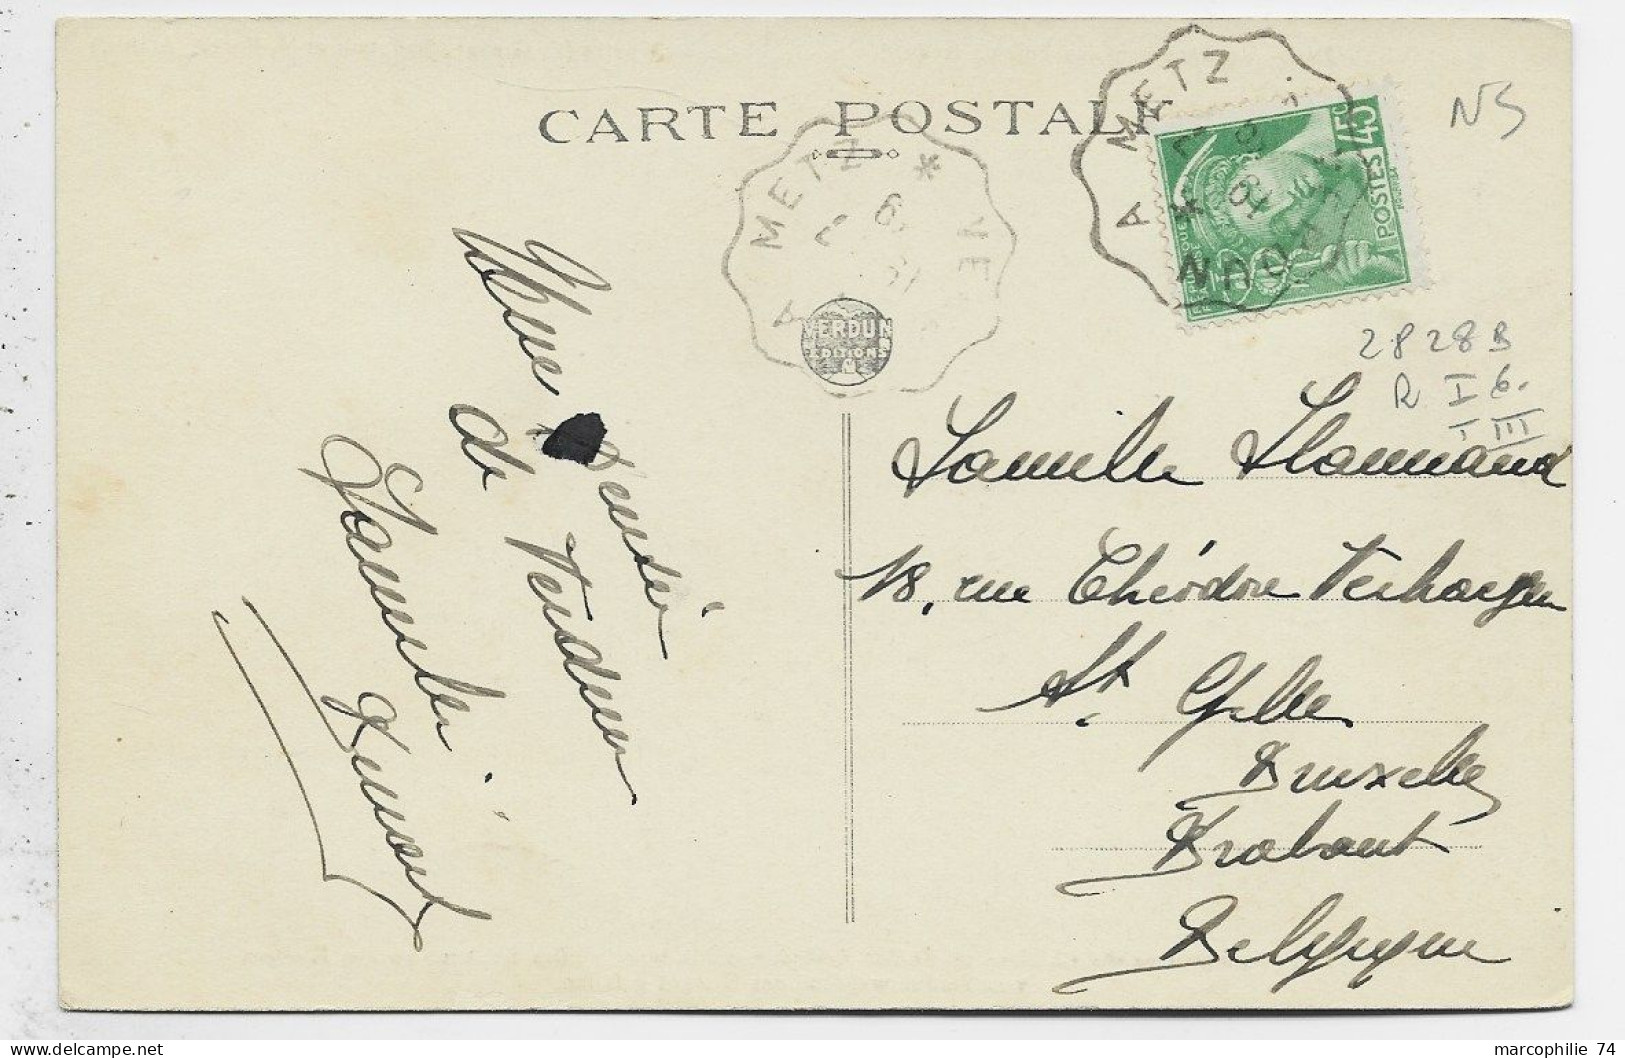 CARTE POSTALE
METZ * VE
A
VERDUN
EDITIONS
A METZ
* VERDUN
POSTES 45c
NS
2828B
R I 6.
I III
Une pensée
de Verdun
Famille
Famille Flammand
18, rue Théodore Verhaegen
St. Gilles
Bruxelles
Brabant
Belgique
marcophilie 74